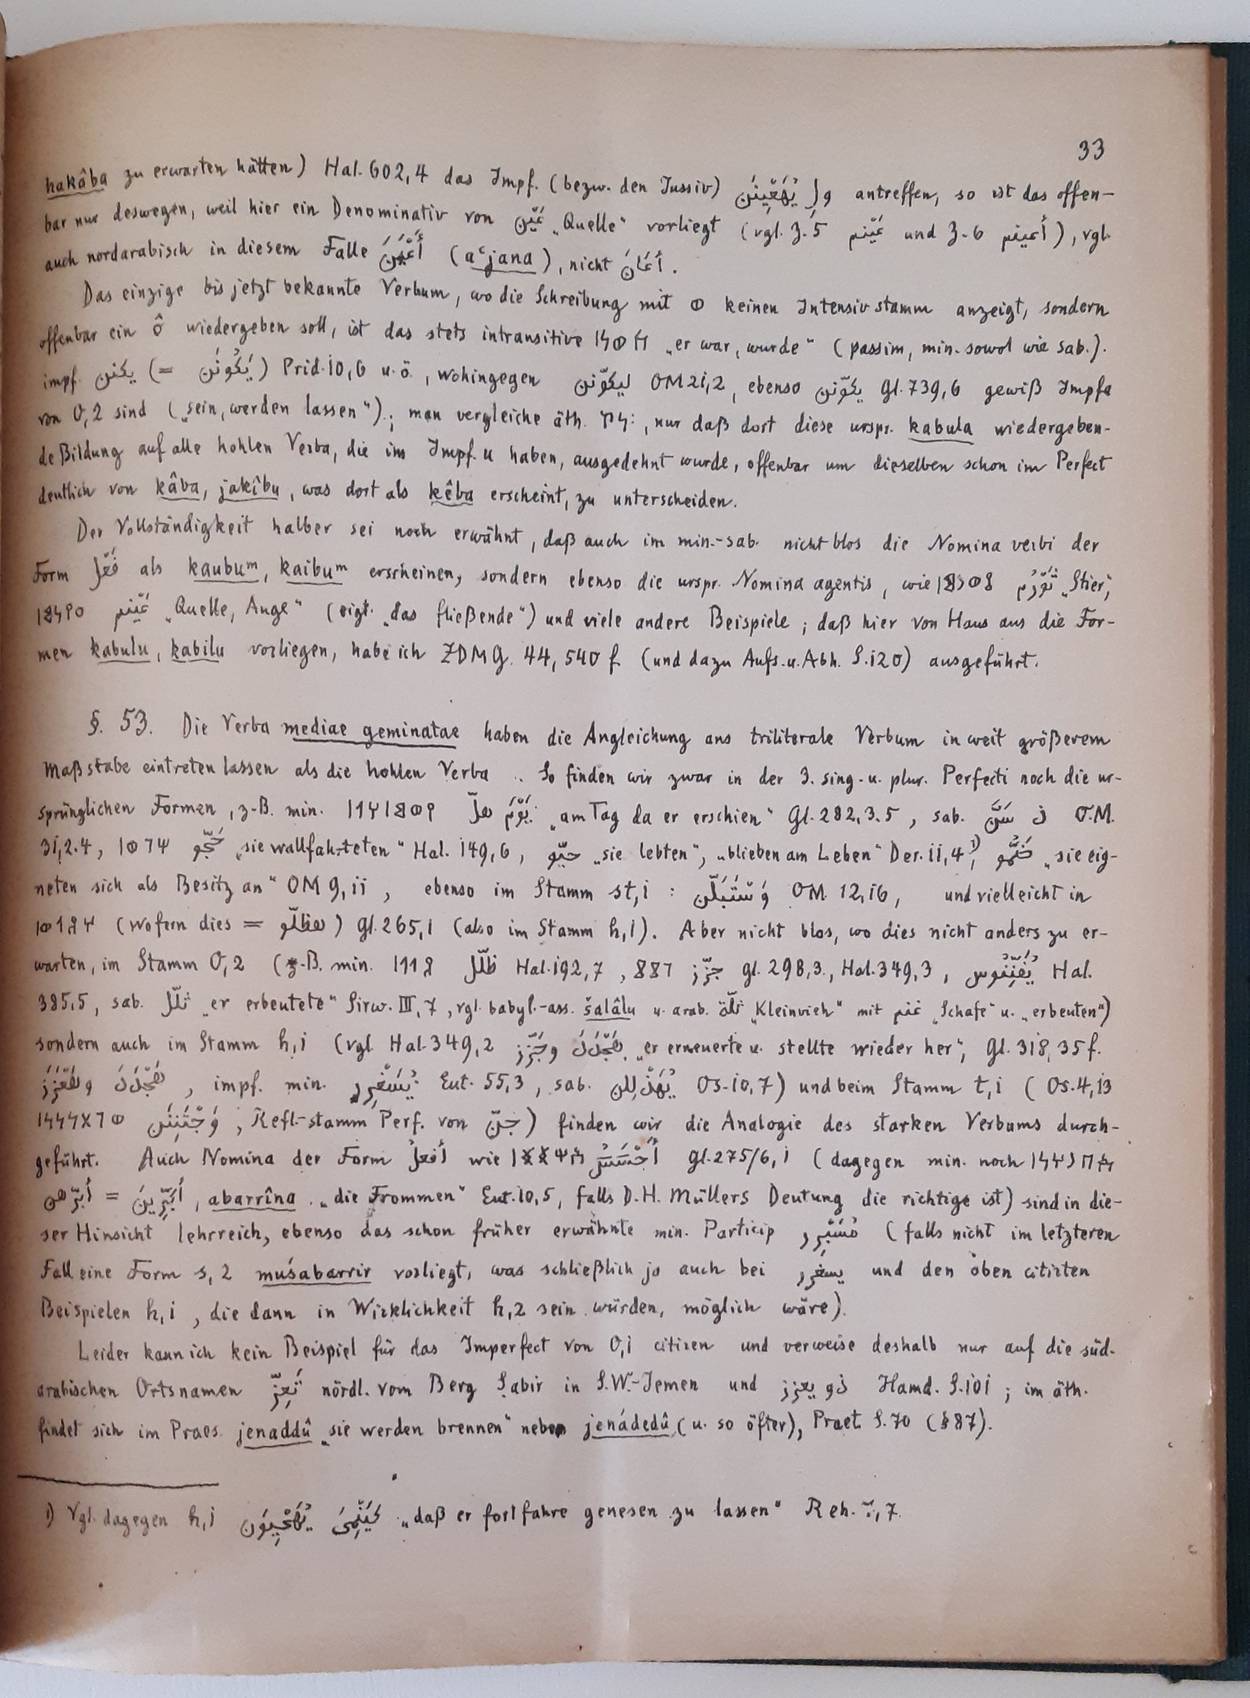 33
hakâba zu erwarten hätten) Hal. 602,4 das Impf. (bezw. den Jussiv) antreffen, so ist das offen-
bar nur deswegen, weil hier ein Denominativ von عَيْن „Quelle“ vorliegt (vgl. Z. 5 عَيْنم und Z. 6 أعينم), vgl.
auch nordarabisch in diesem Falle أَعْيَنَ (aʿjana), nicht أَعَانَ.
Das einzige bis jetzt bekannte Verbum, wo die Schreibung mit 𐩥 keinen Intensivstamm anzeigt, sondern
offenbar ein ô wiedergeben soll, ist das stets intransitive 𐩫𐩥𐩬 „er war, wurde“ (passim, min. sowol wie sab.).
impf. يكنن (= يَكُونَن) Prid. 10,6 u. ö., wohingegen ليكوّنن OM 21,2, ebenso يكوّنن Gl. 739,6 gewiß Impfe
von 0,2 sind („sein, werden lassen“); man vergleiche äth. ኮነ፡, nur daß dort diese urspr. kabula wiedergeben-
de Bildung auf alle hohlen Verba, die im Impf. u haben, ausgedehnt wurde, offenbar um dieselben schon im Perfect
deutlich von kâba, jakîbu, was dort als kêba erscheint, zu unterscheiden.
Der Vollständigkeit halber sei noch erwähnt, daß auch im min.-sab. nicht blos die Nomina verbi der
Form فَعْل als kaubum, kaibum erscheinen, sondern ebenso die urspr. Nomina agentis, wie 𐩻𐩥𐩧𐩣 ثَوْرُم „Stier“,
𐩲𐩺𐩬𐩣 عَيْنم „Quelle, Auge“ (eigt. „das fließende“) und viele andere Beispiele; daß hier von Haus aus die For-
men kabulu, kabilu vorliegen, habe ich ZDMG. 44, 540 f. (und dazu Aufs. u. Abh. S. 120) ausgeführt.
§. 53. Die Verba mediae geminatae haben die Angleichung ans triliterale Verbum in weit größerem
Maßstabe eintreten lassen als die hohlen Verba. So finden wir zwar in der 3. sing. u. plur. Perfecti noch die ur-
sprünglichen Formen, z.B. min. 𐩺𐩥𐩣 𐩠𐩡 يَوْمَ هلّ „am Tag da er erschien“ Gl. 282,3.5, sab. ذ سَنَّ O.M.
31,2.4, 𐩢𐩴𐩥 حَجّو „sie wallfahrteten“ Hal. 149,6, حيّو „sie lebten“, „blieben am Leben“ Der. 11,4¹⁾, „sie eig-
neten sich als Besitz an“ OM 9,11, ebenso im Stamm st,1: OM. 12,16, und vielleicht in
𐩠𐩼𐩡𐩥 (wofern dies = هظلّو) Gl. 265,1 (also im Stamm h,1). Aber nicht blos, wo dies nicht anders zu er-
warten, im Stamm 0,2 (z.B. min. 𐩼𐩡𐩡 ظلّل Hal. 192,7, جزّز Gl. 298,3., Hal. 349,3, Hal.
385,5, sab. ثلّل „er erbeutete“ Sirw. III, 7, vgl. babyl.-ass. šalâlu u. arab. ثلّة „Kleinvieh“ mit غنم „Schafe“ u. „erbeuten“)
sondern auch im Stamm h,1 (vgl. Hal. 349,2 „er erneuerte u. stellte wieder her“, Gl. 318,35 f.
impf. min. Eut. 55,3, sab. Os. 10,7) und beim Stamm t,1 (Os. 4,13
Refl.-stamm Perf. von جنّ) finden wir die Analogie des starken Verbums durch-
geführt. Auch Nomina der Form أَفْعُل wie Gl. 275/6,1 (dagegen min. noch
أَبَرّهن = أَبَرِّينَ, abarrîna „die Frommen“ Eut. 10,5, falls D. H. Müllers Deutung die richtige ist) sind in die-
ser Hinsicht lehrreich, ebenso das schon früher erwähnte min. Particip (falls nicht im letzteren
Fall eine Form s,2 muśabarrir vorliegt, was schließlich ja auch bei und den oben citirten
Beispielen h,1, die dann in Wirklichkeit h,2 sein würden, möglich wäre).
Leider kann ich kein Beispiel für das Imperfect von 0,1 citiren und verweise deshalb nur auf die süd-
arabischen Ortsnamen تَعِزّ nördl. vom Berg Ṣabir in S.W.-Jemen und ذو يعزز Hamd. S. 101; im äth.
findet sich im Praes. jenaddû „sie werden brennen“ neben jenádedû (u. so öfter), Praet. S. 70 (§ 87).
1) Vgl. dagegen h,1 „daß er fortfahre genesen zu lassen“ Reh.